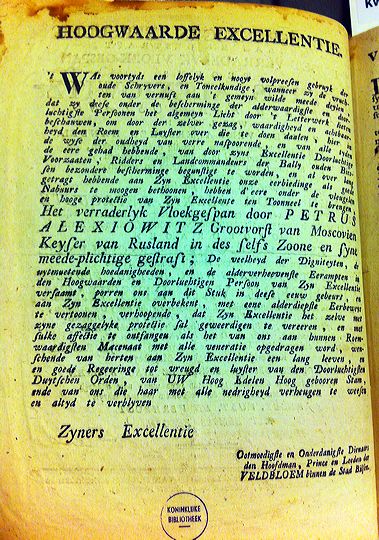 HOOGWAARDE EXCELLENTIE.
't WAs voortyds een loffelyk en nooyt volpresen gebruyk der
oude Schryvers, en Toneelkundige, wanneer zy de vruch-
ten van vernuft aan 't gemeyn wilde meede deylen,
dat zy deese onder de bescherminge der alderwaardigste en door-
luchtigste Persoonen het algemeyn Licht door 't Letterwerk lieten
beschauwen, om door der zelver gezag, waardigheyd en achtbaer-
heyd den Roem en Luyster over die te doen daalen, hier in
de wyse der oudheyd van verre naspoorende, en van over
de eere gehad hebbende, van door zyne Excellentie Doorluchtige
Voorzaaten, Ridders en Landcommandeurs der Bally ouden Bies-
sen bezondere bescherminge begunstigt te worden, en al over lang
getragt hebbende aan Zyn Excellentie onze eerbiedinge als goede
Nabuurs te moogen bethoonen, hebben d'eere onder de vleugelen
en hooge protectie van Zyn Excellentie ten Tonneel te brengen
Het verraderlyk Vloekgespan door PETRUS
ALEXIOWITZ Grootvorst van Moscovien
Keyser van Rusland in des selfs Zoone en syne
meede-plichtige gestraft; De veelheyd der Digniteyten, de
uytmuetende hoedanigheeden, en de alderverhevenste Eerampten in
den Hoogwaarden en Doorluchtigen Persoon van Zyn Excellentie
versaamt, porren ons aan dit Stuk in deese eeuw gebeurt, en
aan Zyn Excellentie overbekent, met eene alderdiepste Eerbewest
te vertoonen, verhoopende, dat Zyn Excellentie het zelve met
zyne gezaggelyke protectie sal geweerdigen te vereeren, en met
sulke affectie te ontfangen als het van ons aan hunnen Roem-
waardigsten Mecenaat met alle veneratie opgedragen word, wen-
schende van herten aan Zyn Excellentie een lang leeven, en
en goede Regeeringe tot vreugd en luyster van den Doorluchtigsten
Duytschen Orden, van UW Hoog Edelen Hoog geboren Stam,
ende van ons die haar met alle nedrigheyd verheugen te weesen
en altyd te verblyven
Zyners Excellentie
Ootmoedigste en Onderdanigste Dienaars
den Hoofdman, Prince en Leeden der
VELDBLOEM binnen de Stad Bilsen.
KONINKLIJKE
BIBLIOTHEEK